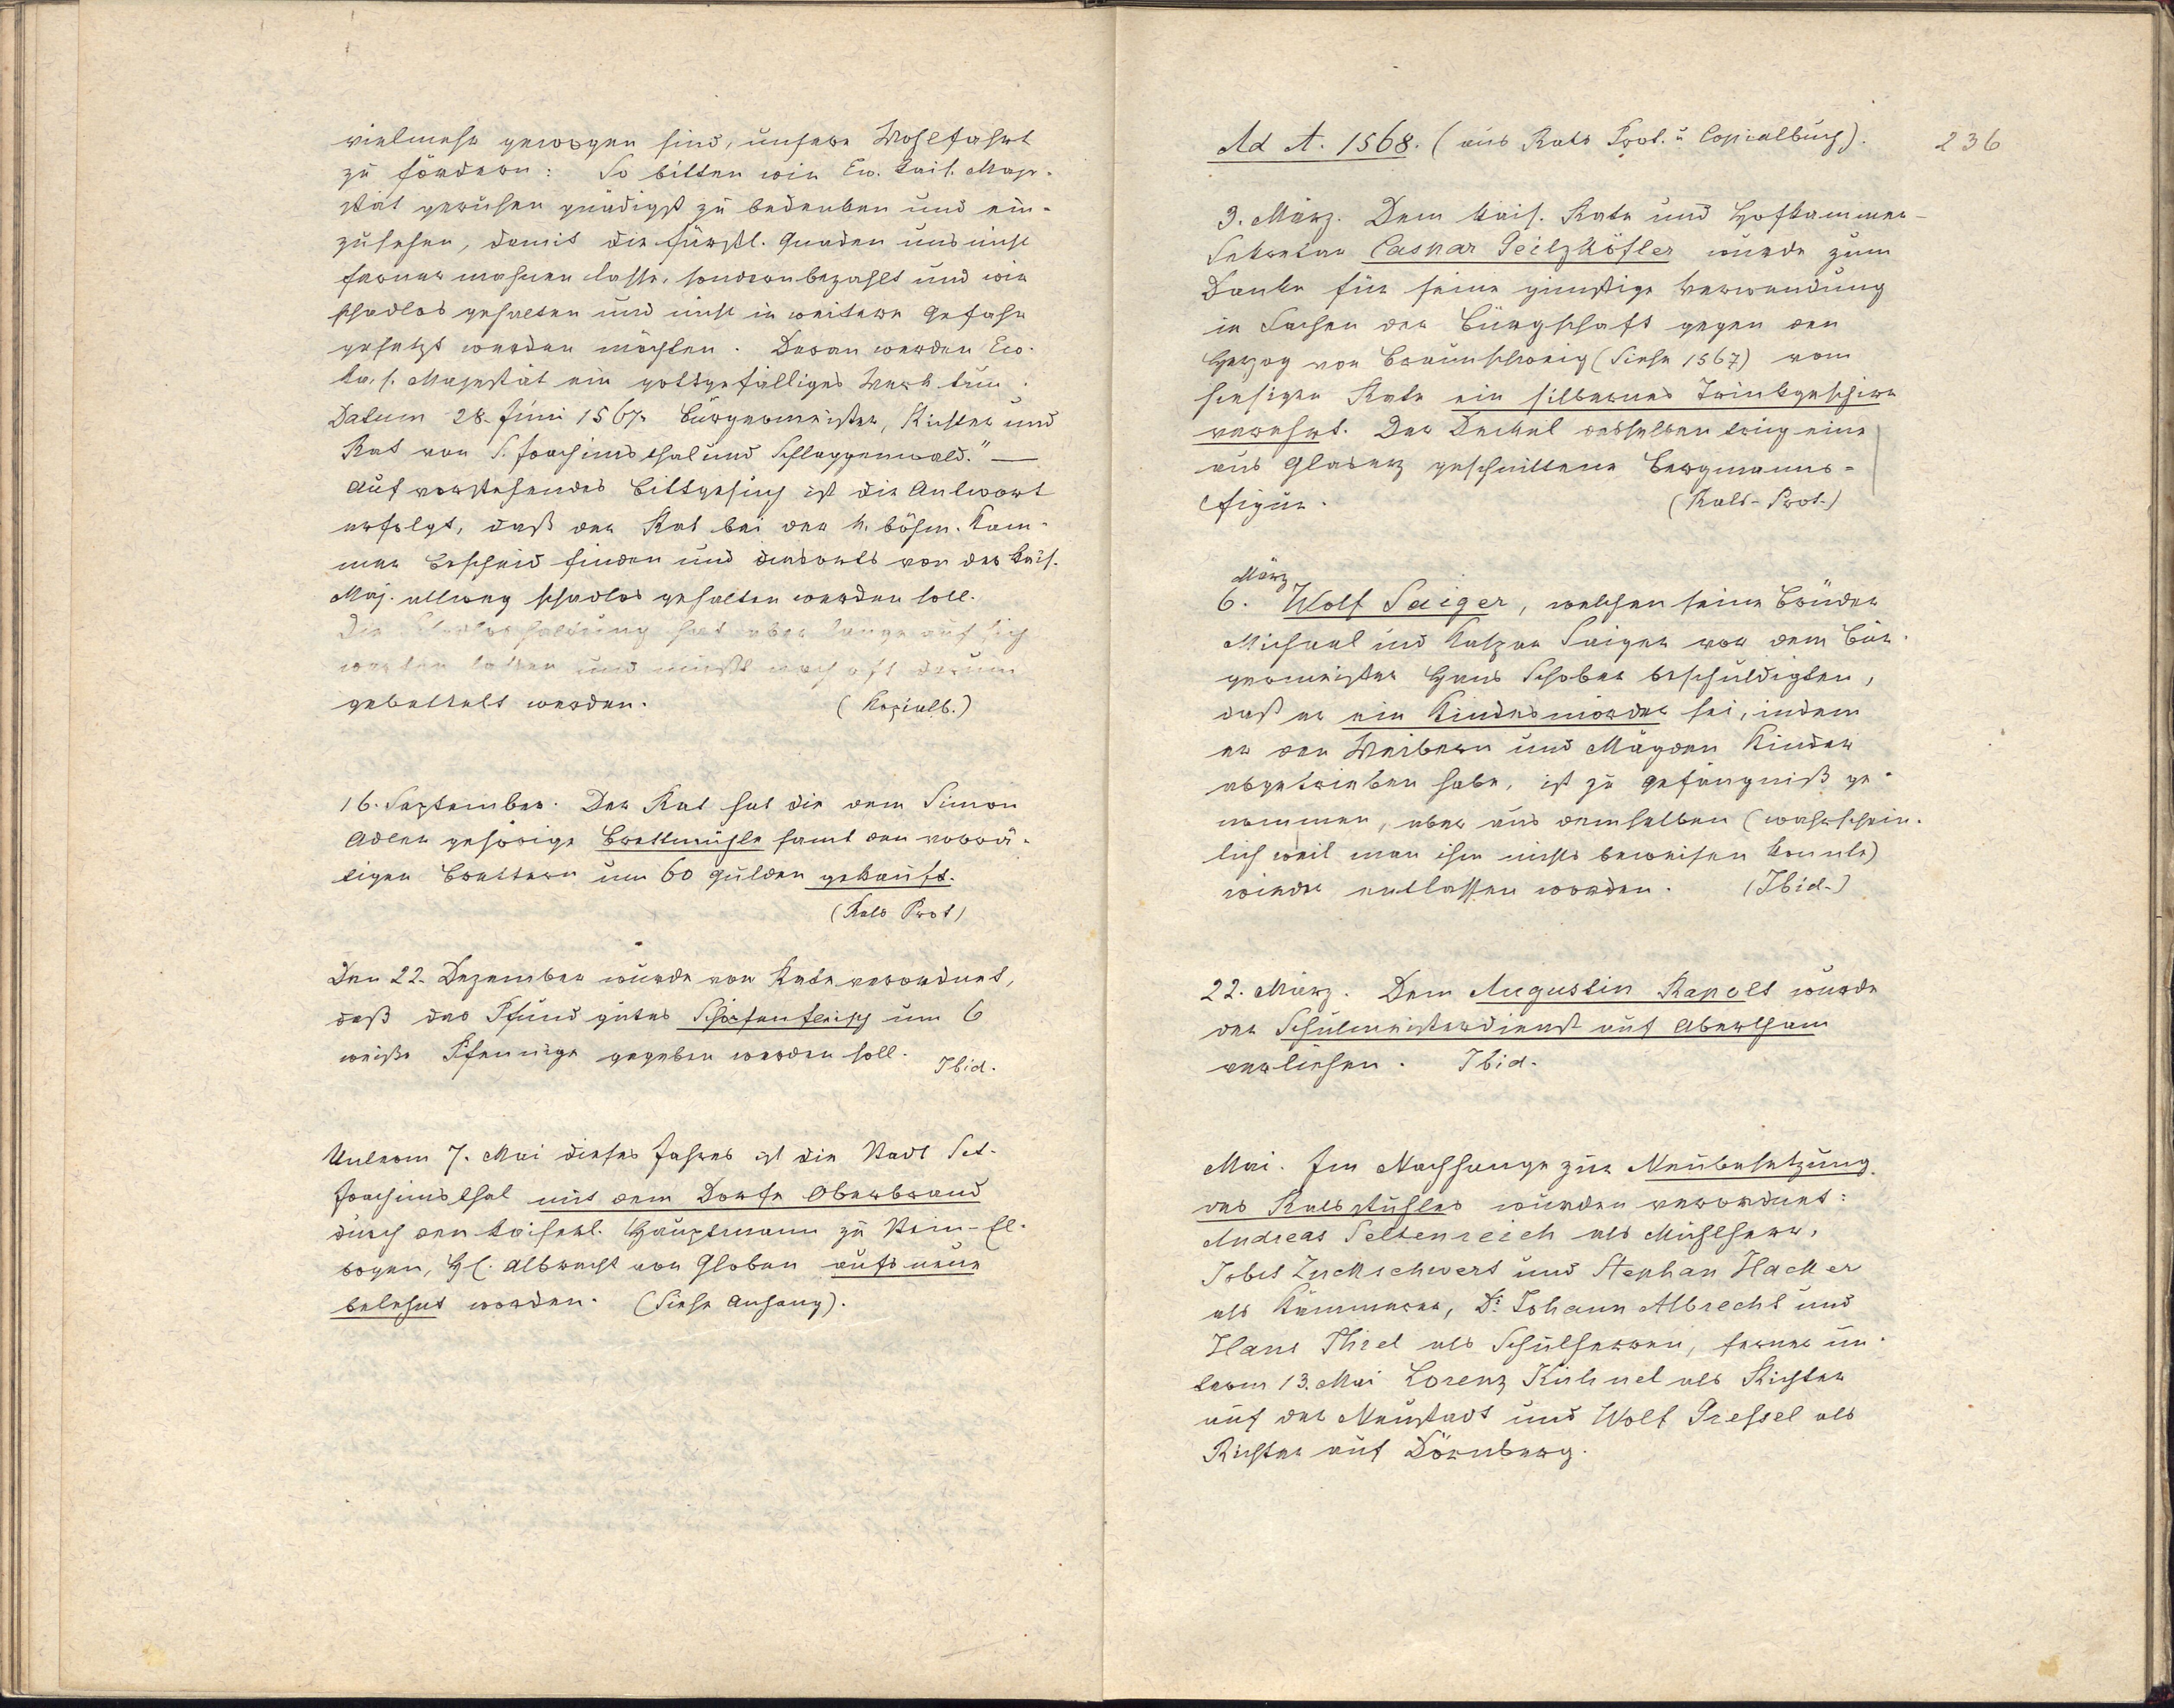 vielmehr gewogen sind, unsere Wohlfahrt
zu fördern: So bitten wir Ew. kais. Maje-
stät geruhen gnädigst zu bedenken und ein-
zusehen, damit die fürstl. Gnaden uns nicht
ferner mahnen lasse, sondern bezahlt und wir
schadlos gehalten und nicht in weitere Gefahr
gesetzt werden möchten. Daran werden Ew.
ka. s. Majestät ein gottgefälliges Werk tun.
Datum 28. Juni 1567. Bürgermeister, Richter und
Rat von S. Joachimsthal und Schlaggenwald." —
Auf vorstehendes Bittgesuch ist die Antwort
erfolgt, daß der Rat bei der h. böhm. Kam-
mer Bescheid finden und diesorts von der kais.
Maj. allweg schadlos gehalten werden soll.
Die Schadloshaltung hat aber lange auf sich
warten lassen und mußte noch oft darum
gebettelt werden. (Kopialb.)
16. September. Der Rat hat die dem Simon
Adler gehörige Brettmühle samt den vorrä-
tigen Brettern um 60 Gulden gekauft.
(Rats Prot)
Den 22. Dezember wurde vom Rate verordnet,
daß das Pfund gutes Schöpsenfleisch um 6
weiße Pfennige gegeben werden soll. Ibid.
Unterm 7. Mai dieses Jahres ist die Stadt Sct.
Joachimsthal mit dem Dorfe Oberbrand
durch den kaiserl. Hauptmann zu Stein-El-
bogen, H. Albrecht von Globen aufs neue
belehnt worden. (Siehe Anhang).
Ad A. 1568. (aus Rats Prot. u Copialbuch). 236
3. März. Dem kais. Rate und Hofkammer-
Sekretär Caspar Geilzköfler wurde zum
Danke für seine günstige Verwendung
in Sachen der Bürgschaft gegen den
Herzog von Braunschweig (Siehe 1567) vom
hiesigen Rate ein silbernes Trinkgeschirr
verehrt. Der Deckel desselben trug eine
aus Glaserz geschnittene Bergmanns-
figur. (Rats-Prot.)
März
6. Wolf Saiger, welchen seine Brüder
Michael und Kaspar Saiger vor dem Bür-
germeister Hans Schober beschuldigten,
daß er ein Kindesmörder sei, indem
er den Weibern und Mägden Kinder
abgetrieben habe, ist zu Gefängniß ge-
nommen, aber aus demselben (wahrschein-
lich weil man ihm nichts beweisen konnte)
wieder entlassen worden. (Ibid.)
22. März. Dem Augustin Rapolt wurde
der Schulmeisterdienst auf Abertham
verliehen. Ibid.
Mai. Im Nachhange zur Neubesetzung
des Ratsstuhles wurden verordnet:
Andreas Seltenreich als Mühlherr,
Jobst Zuckschwert und Stephan Hacker
als Kämmerer, Dr. Johann Albrecht und
Hans Thiel als Schulherren, ferner un-
term 13. Mai Lorenz Kühnel als Richter
auf der Neustadt und Wolf Pressel als
Richter auf Dörnberg.